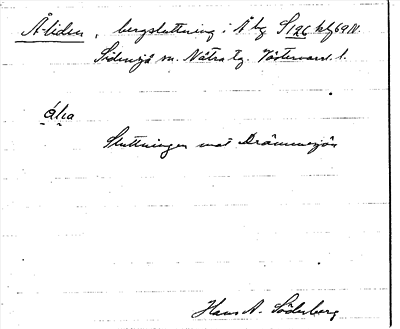 Å-liden, bergsluttning i Å by S126 blg 69 N.
Sidensjö sn. Nätra tg. Västernorrl. l.
åli̯a
Sluttningen mot Drömmesjön
Hans A. Söderberg